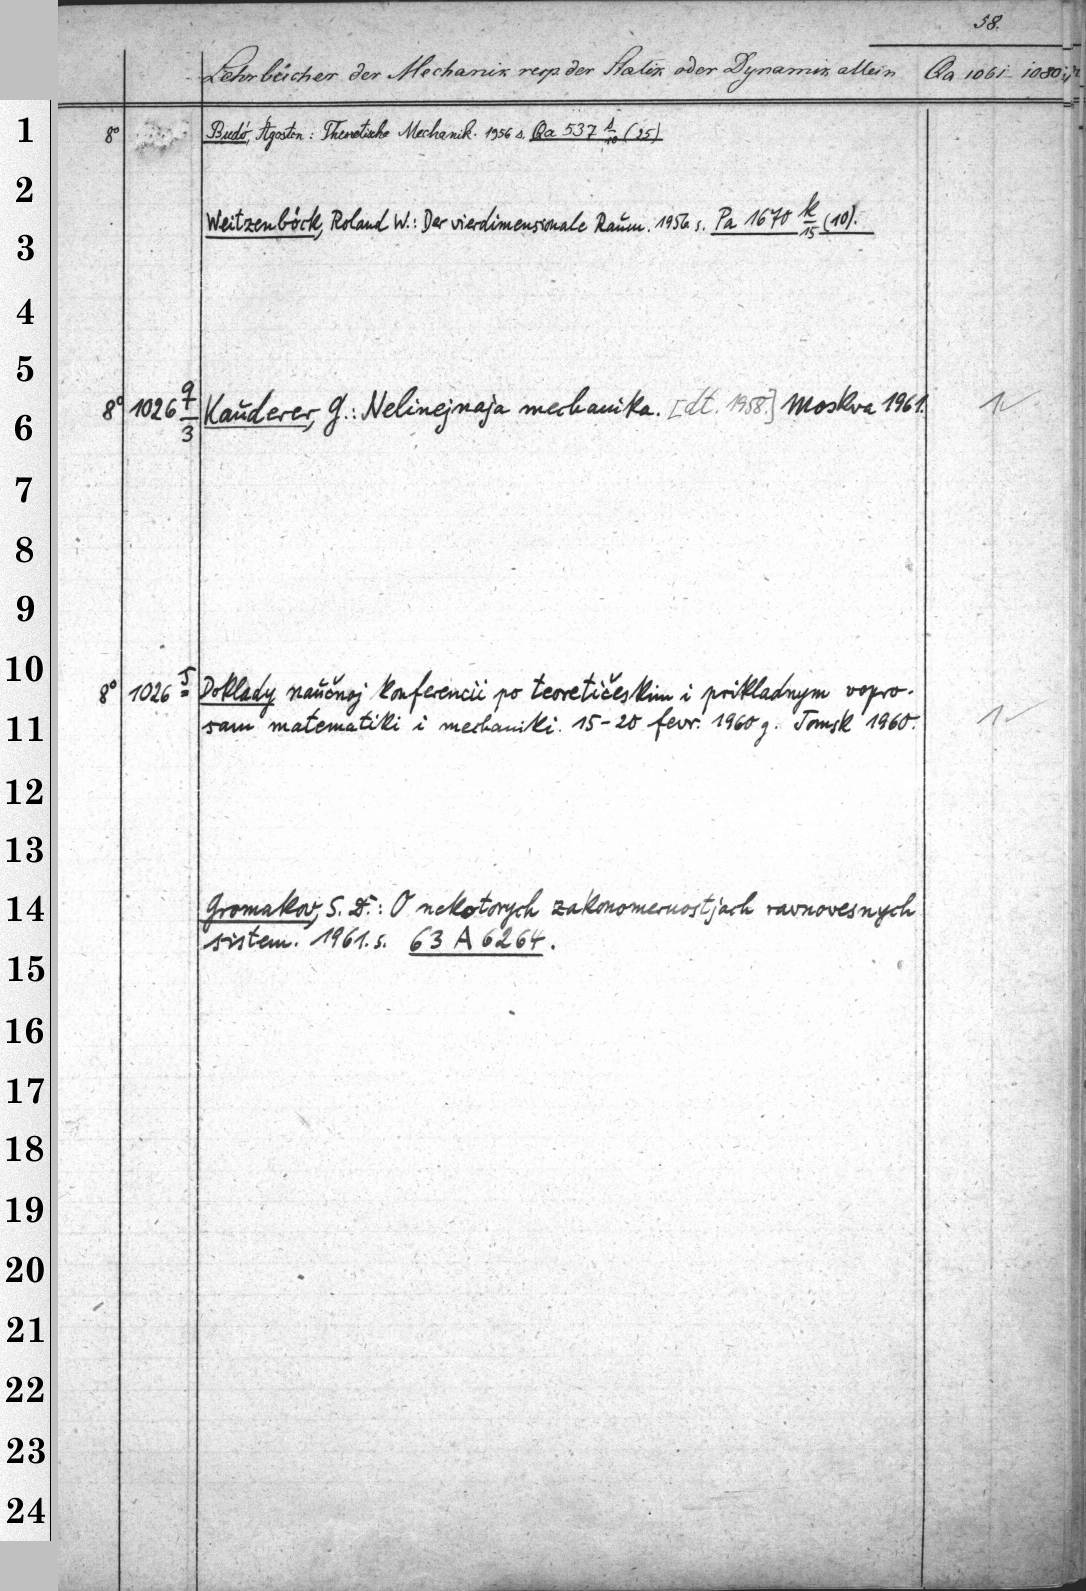 38.
Lehrbücher der Mechanik resp. der Statik oder Dynamik allein Qa 1061-1080
1 8° Budó, Ágoston: Theoretische Mechanik. 1956 s. Qa 537 (25)
2
Weitzenböck, Roland W.: Der vierdimensionale Raum. 1956 s. Pa 1670 k/15 (10).
3
4
5
8° 1026 q/3 Kauderer, G.: Nelinejnaja mechanika. [dt. 1958.] Moskva 1961. 1
6
7
8
9
10
8° 1026 Doklady naučnoj konferencii po teoretičeskim i prikladnym vopro-
11 sam matematiki i mechaniki. 15-20 fevr. 1960 g. Tomsk 1960. 1
12
13
14 Gromakov, S. D.: O nekotorych zakonomernostjach ravnovesnych
sistem. 1961. s. 63 A 6264.
15
16
17
18
19
20
21
22
23
24